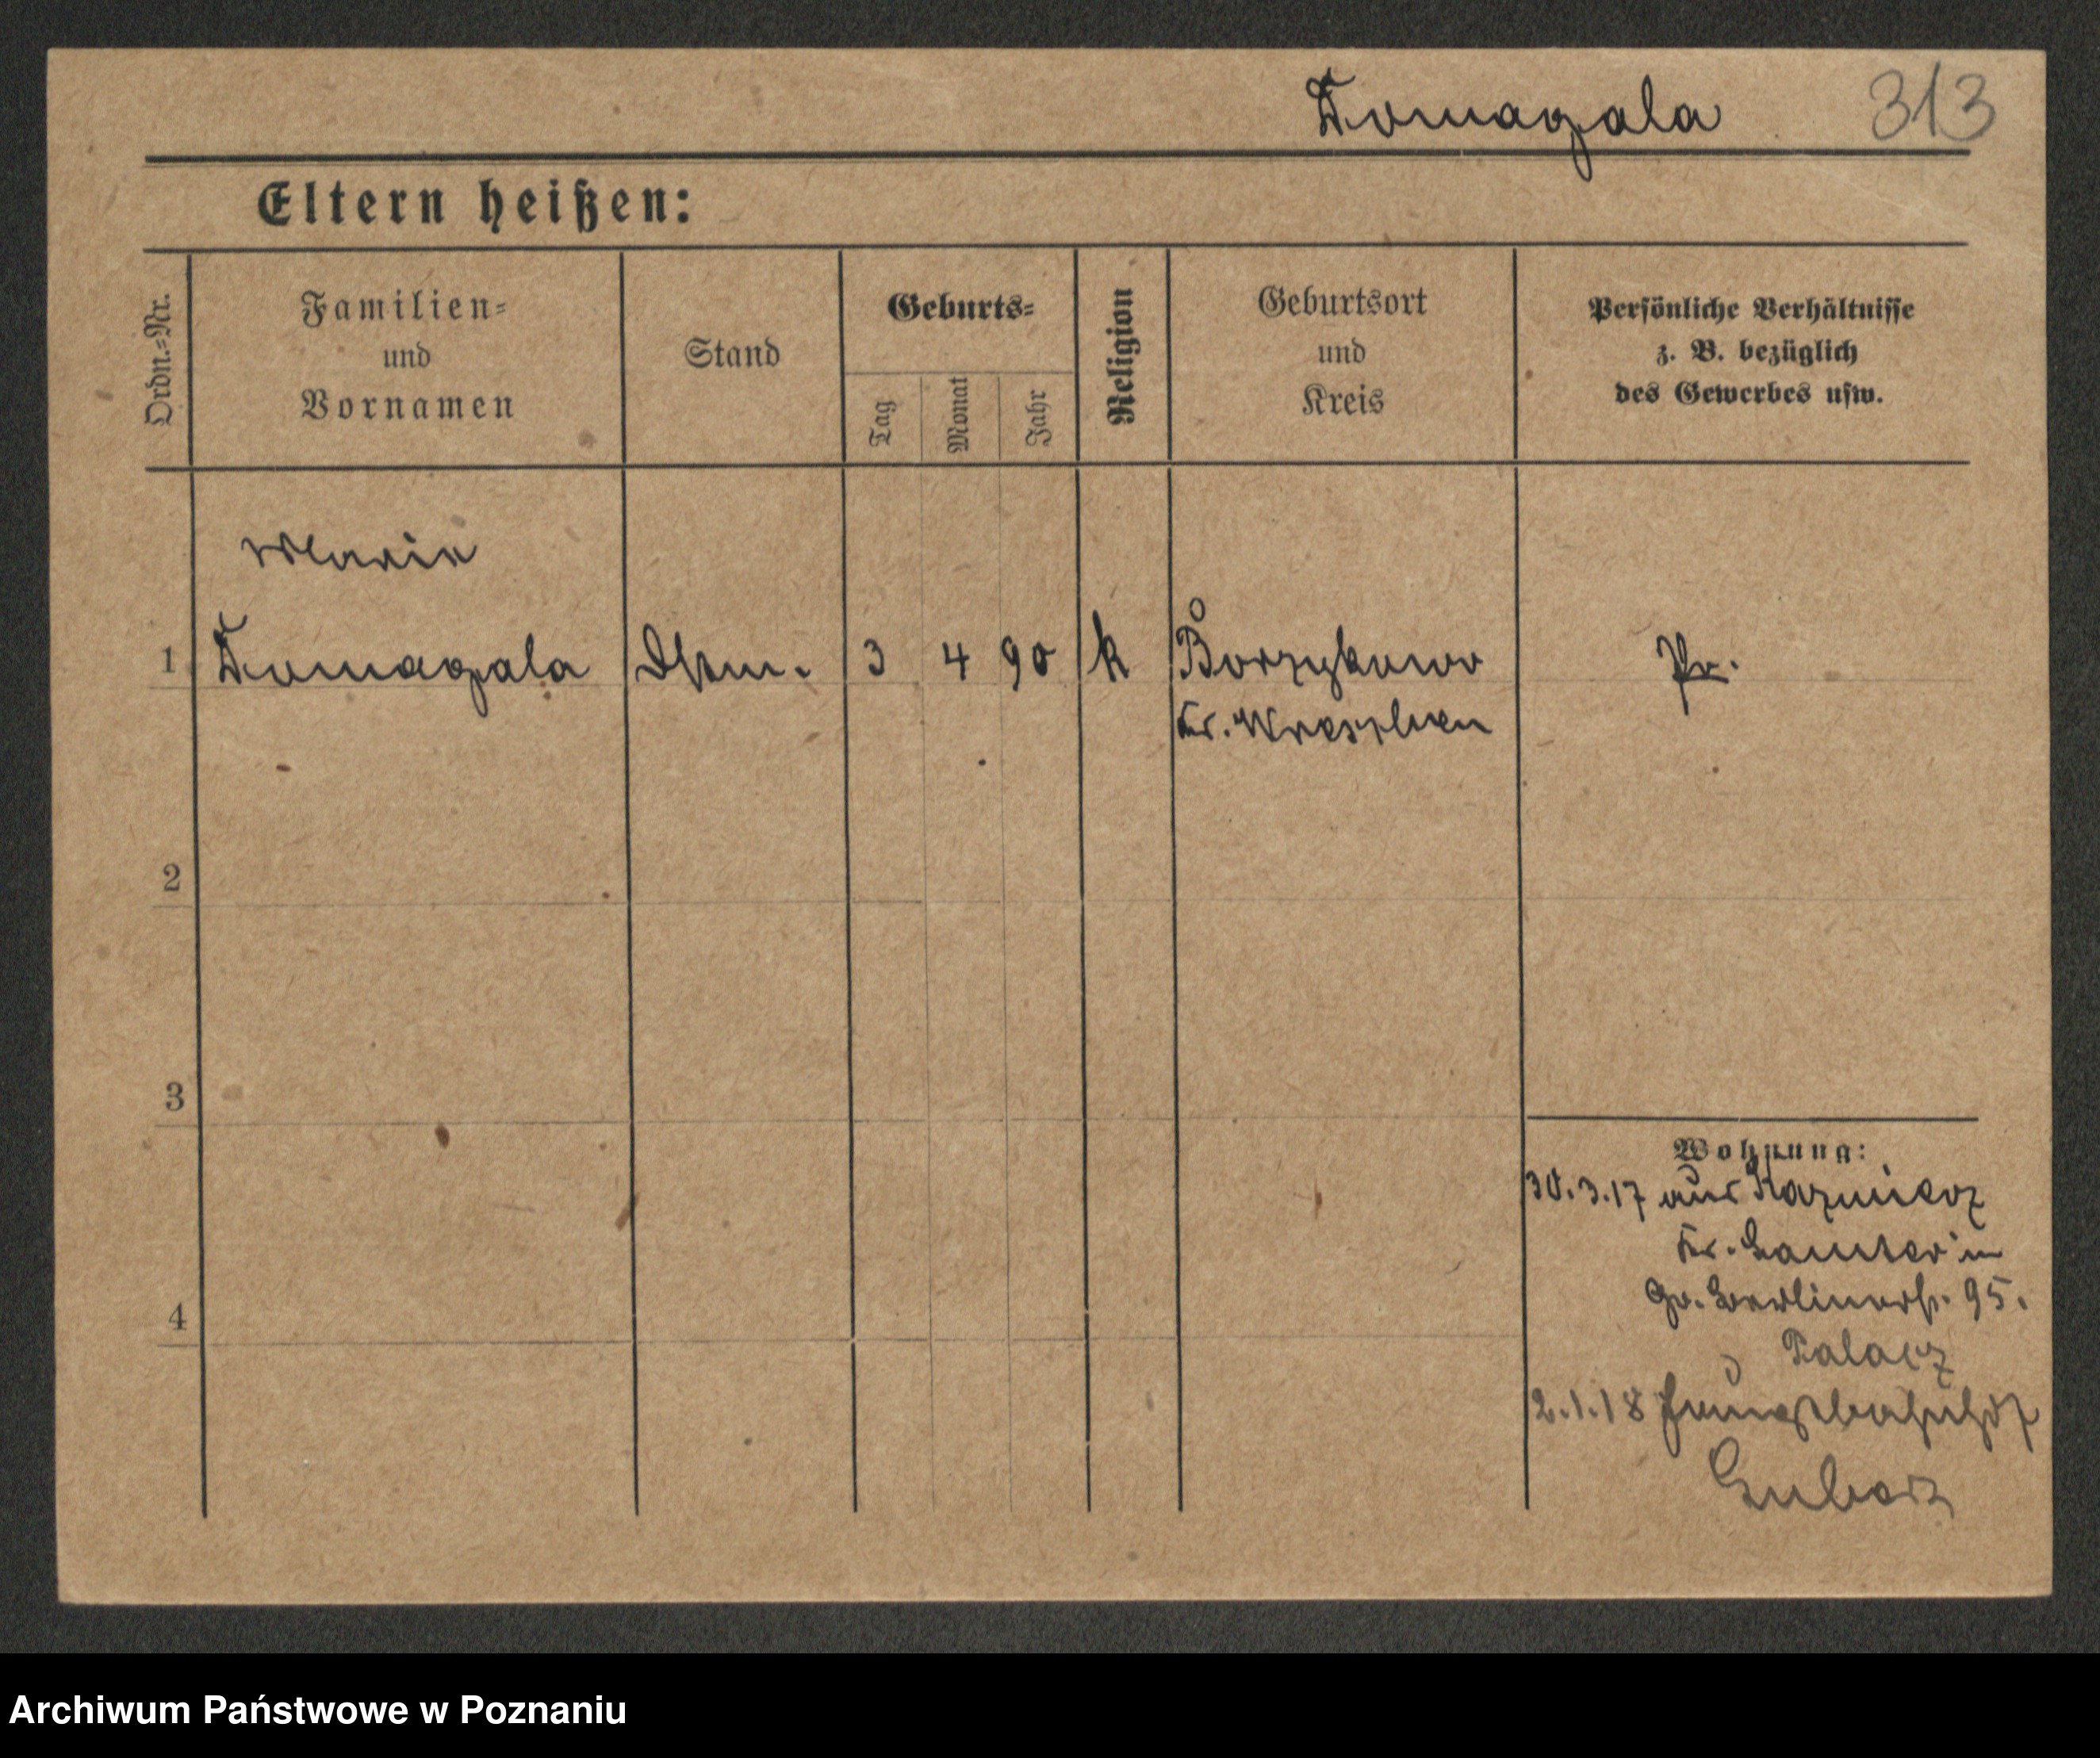 Domagala 313
Eltern heißen:
Ordn.=Nr.
Familien=
und
Vornamen
Stand
Geburts=
Tag
Monat
Jahr
Religion
Geburtsort
und
Kreis
Persönliche Verhältnisse
z. B. bezüglich
des Gewerbes usw.
Marie
1 Domagala 3 4 90 k Borzykowo Pr.
Kr. Wreschen
2
3
4
Wohnung:
30.3.17 aus Kazmierz
Kr. Samter in
Gr. Berlinerstr. 95.
Palacz
2.1.18
Archiwum Państwowe w Poznaniu